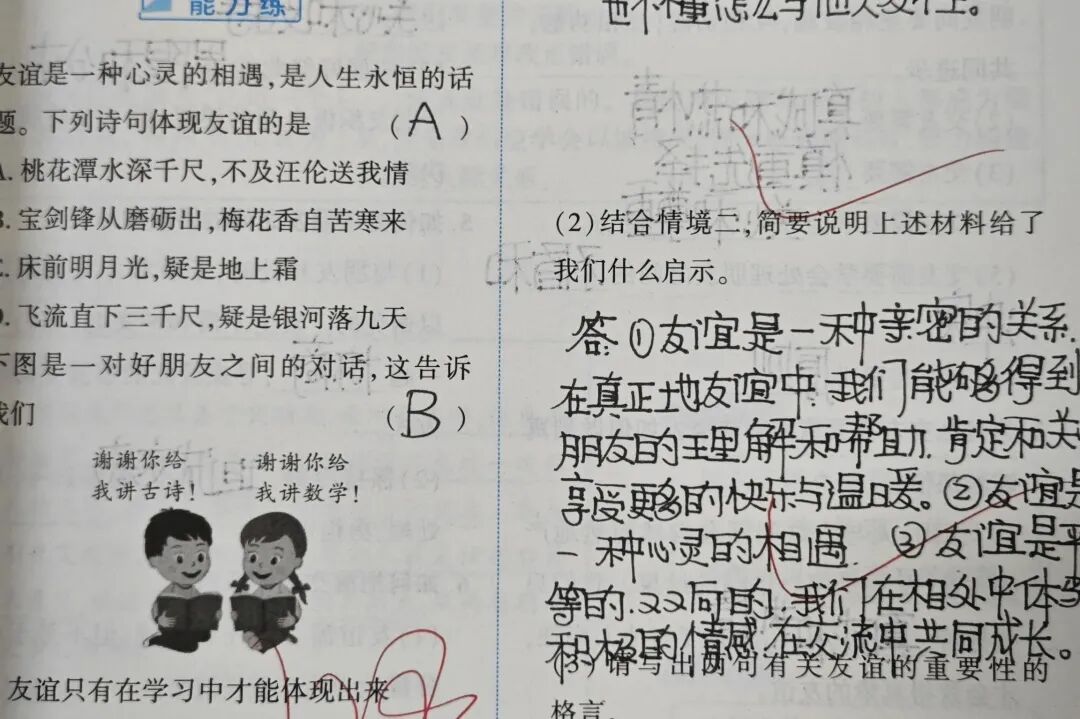 能力练
友谊是一种心灵的相遇,是人生永恒的话
题。下列诗句体现友谊的是 (A)
A.桃花潭水深千尺,不及汪伦送我情
B.宝剑锋从磨砺出,梅花香自苦寒来
C.床前明月光,疑是地上霜
D.飞流直下三千尺,疑是银河落九天
下图是一对好朋友之间的对话,这告诉
我们 (B)
谢谢你给
我讲古诗!
谢谢你给
我讲数学!
友谊只有在学习中才能体现出来
(2)结合情境二,简要说明上述材料给了
我们什么启示。
答:①友谊是一种亲密的关系.
在真正地友谊中.我们能够得到
朋友的理解和帮助.肯定和关
享受更多的快乐与温暖。②友谊是
一种心灵的相遇. ③友谊是平
等的.双向的.我们在相处中体
积极的情感.在交流中共同成长。
(3)请写出两句有关友谊的重要性的
格言。